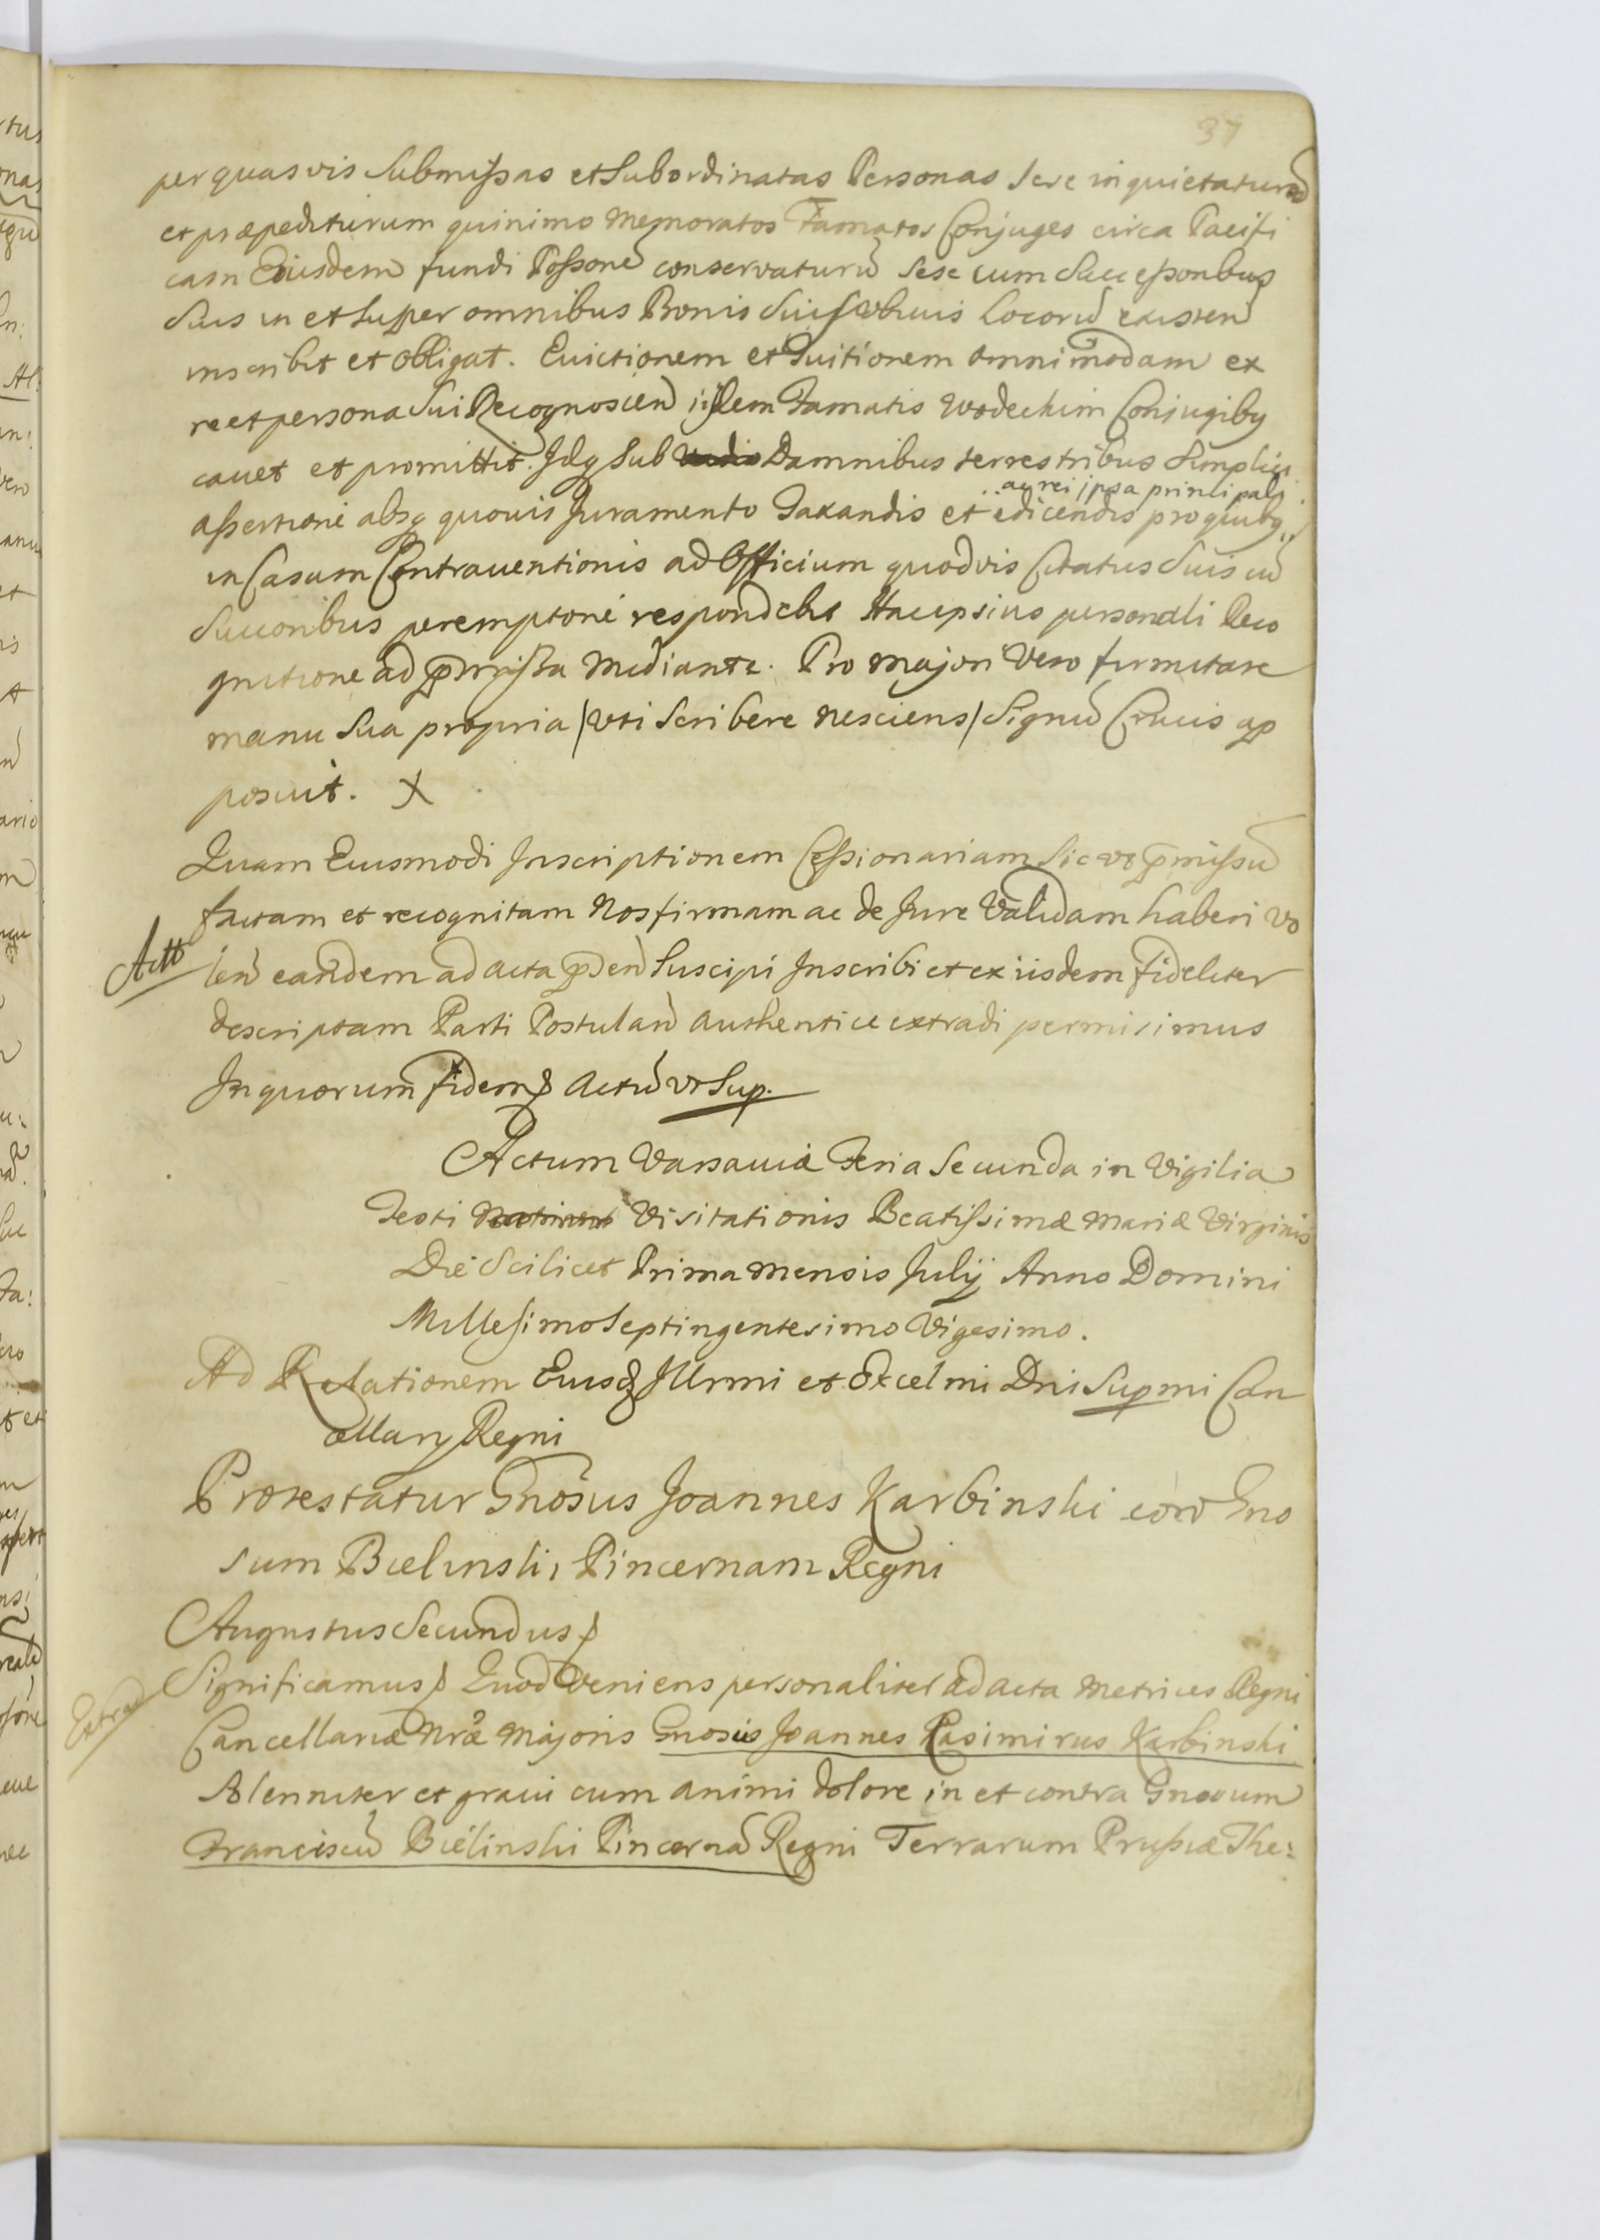 37
per quasvis Submissas et Subordinatas Personas sese inquietaturũ
et præpediturum quinimo Memoratos Famatos Conjuges circa Pacifi
cam Eiusdem fundi Possonẽ conservaturũ sese cum Successoribus
Suis in et super omnibus Bonis Suis ubivis Locorũ existeñ
inscribit et obligat. Evictionem et Tuitionem omnimodam ex
re et persona Sui Recognosceñ iisdem Famatis Wodeckim Conjugibq
cavet et promittit. Idq Sub Damnibus terrestribus Simplici
ac rei ipsa principali
assertione absq quovis Juramento Taxandis et edicendis pro quibq
in Casum Contraventionis ad Officium quodvis Citatus Suis cũ
Succoribus peremptorie respondebit Hac ipsius personali Reco
gnitione ad præmissa Mediante. Pro majori Vero firmitate
manu Sua propria /uti Scribere nesciens/ Signũ Crucis ap
posuit. X
Quam Eiusmodi Inscriptionem Cessionariam sic ut præmissũ
factam et recognitam Nos firmam ac de Jure Validam haberi vo
Actt
leñ eandem ad acta præseñ Suscipi Inscribi et ex iisdem fideliter
descriptam Parti Postulañ authentice extradi permisimus
In quorum fidem Actũ ut Sup.
Actum Varsaviæ Feria Secunda in Vigilia
Festi Visitationis Beatissimæ Mariæ Virginis
Die Scilicet Prima mensis Julij Anno Domini
Millesimo Septingentesimo Vigesimo.
Ad Relationem Eiusd Illrmi et Excelmi Dni Supmi Can
cellarij Regni
Protestatur Gnosus Joannes Karbinski coñ Gno
sum Bielinski, Pincernam Regni
Augustus Secundus
Extrad
Significamus Quod Veniens personaliter ad acta Metrices Regni
Cancellariæ Nræ Majoris Gnosus Joannes Kasimirus Karbinski
Solenniter et gravi cum animi dolore in et contra Gnosum
Franciscũ Bielinski Pincernã Regni Terrarum Prussiæ The: